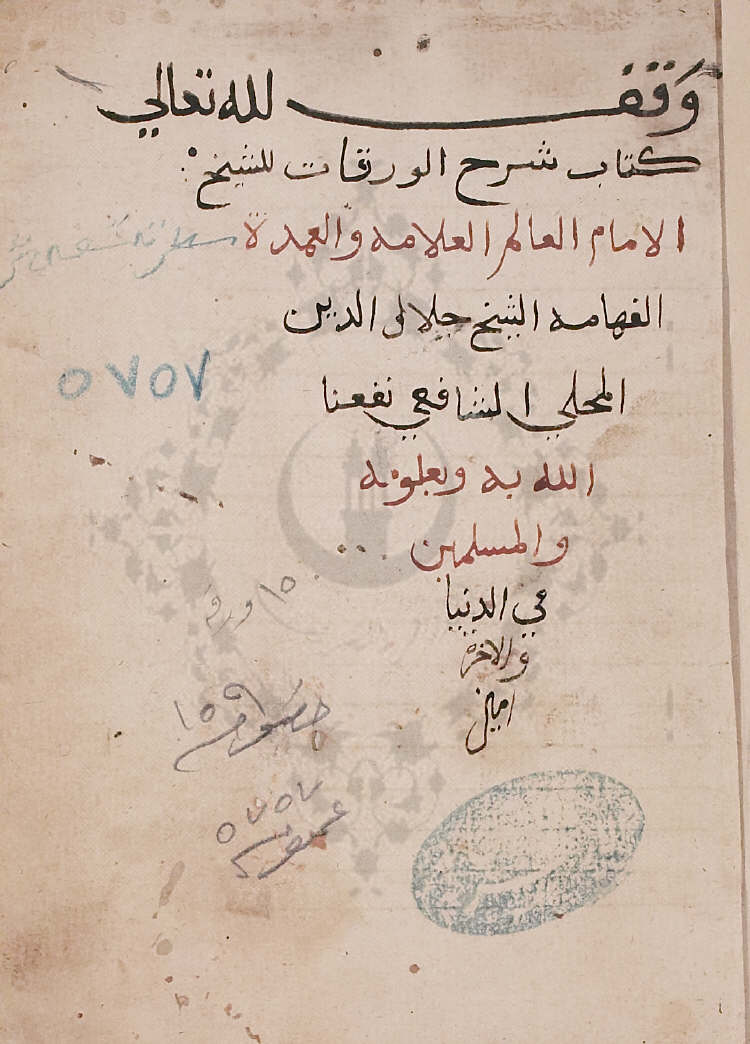 وَقف لله تعالي
كتاب شرح الورقات للشيخ
الامام العالم العلامه والعمدة
الفهامه الشيخ جلال الدين
المحلي الشافعي نفعنا
الله به وبعلومه
والمسلمين
في الدنيا
والاخرة
امين
٥٧٥٧
١٥ ورقه
خصوصيه ١٥٩
عموميه ٥٧٥٧